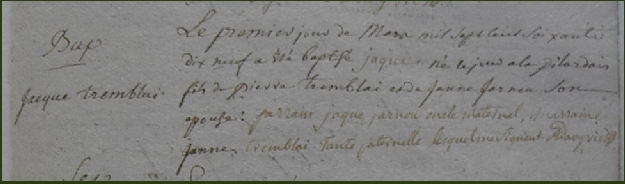 Bap
jacque tremblai
Le premier jour de Mars mil sept cent soixante
dix neuf a été baptisé jaque né le jour a la
fils de pierre tremblai et de janne jarnou son
epouse : parrain jaque jarnou oncle maternel, marraine
janne tremblai tante paternelle lesquels